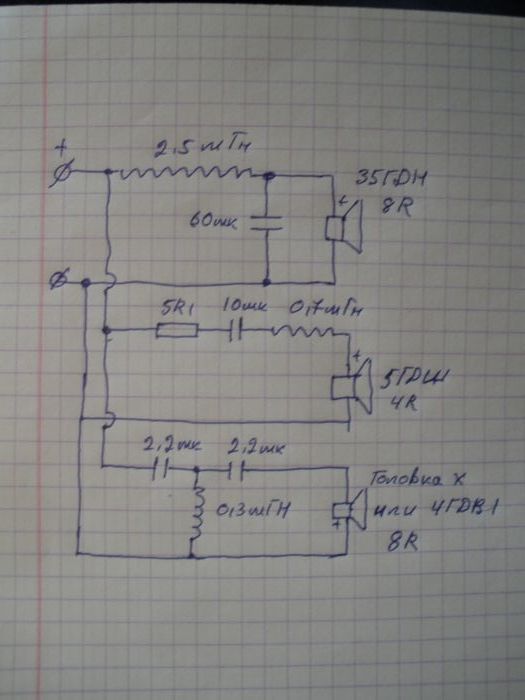 +
2,5мГн
35ГДН
8R
60мк
+
5R1
10мк
0,7мГн
+
5ГДШ
4R
2,2мк
2,2мк
0,3мГН
Головка X
или 4ГДВ1
8R
+